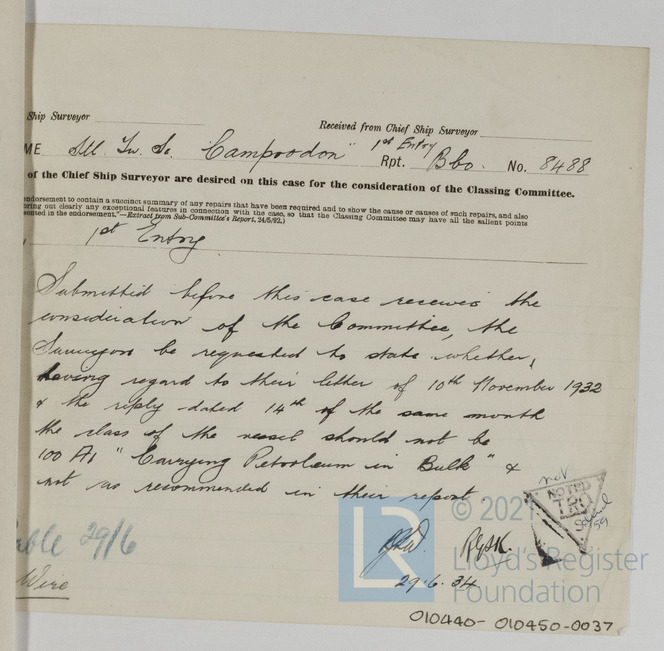 Ship Surveyor
Received from Chief Ship Surveyor
1st Entry
ME Stl. Tw. Sc. "Campoodon" Rpt. Bbo. No. 8488
of the Chief Ship Surveyor are desired on this case for the consideration of the Classing Committee.
endorsement to contain a succinct summary of any repairs that have been required and to show the cause or causes of such repairs, and also
bring out clearly any exceptional features in connection with the case, so that the Classing Committee may have all the salient points
sented in the endorsement."—Extract from Sub-Committee's Report, 24/5/92.)
1st Entry
Submitted before this case receives the
consideration of the Committee, the
Surveyors be requested to state whether,
having regard to their letter of 10th November 1932
& the reply dated 14th of the same month
the class of the vessel should not be
100 A1 "Carrying Petroleum in Bulk" &
not as recommended in their report
NOTED
able 29/6
Wire
29.6.34
© 2021
Lloyd's Register
Foundation
LR
010440-010450-0037